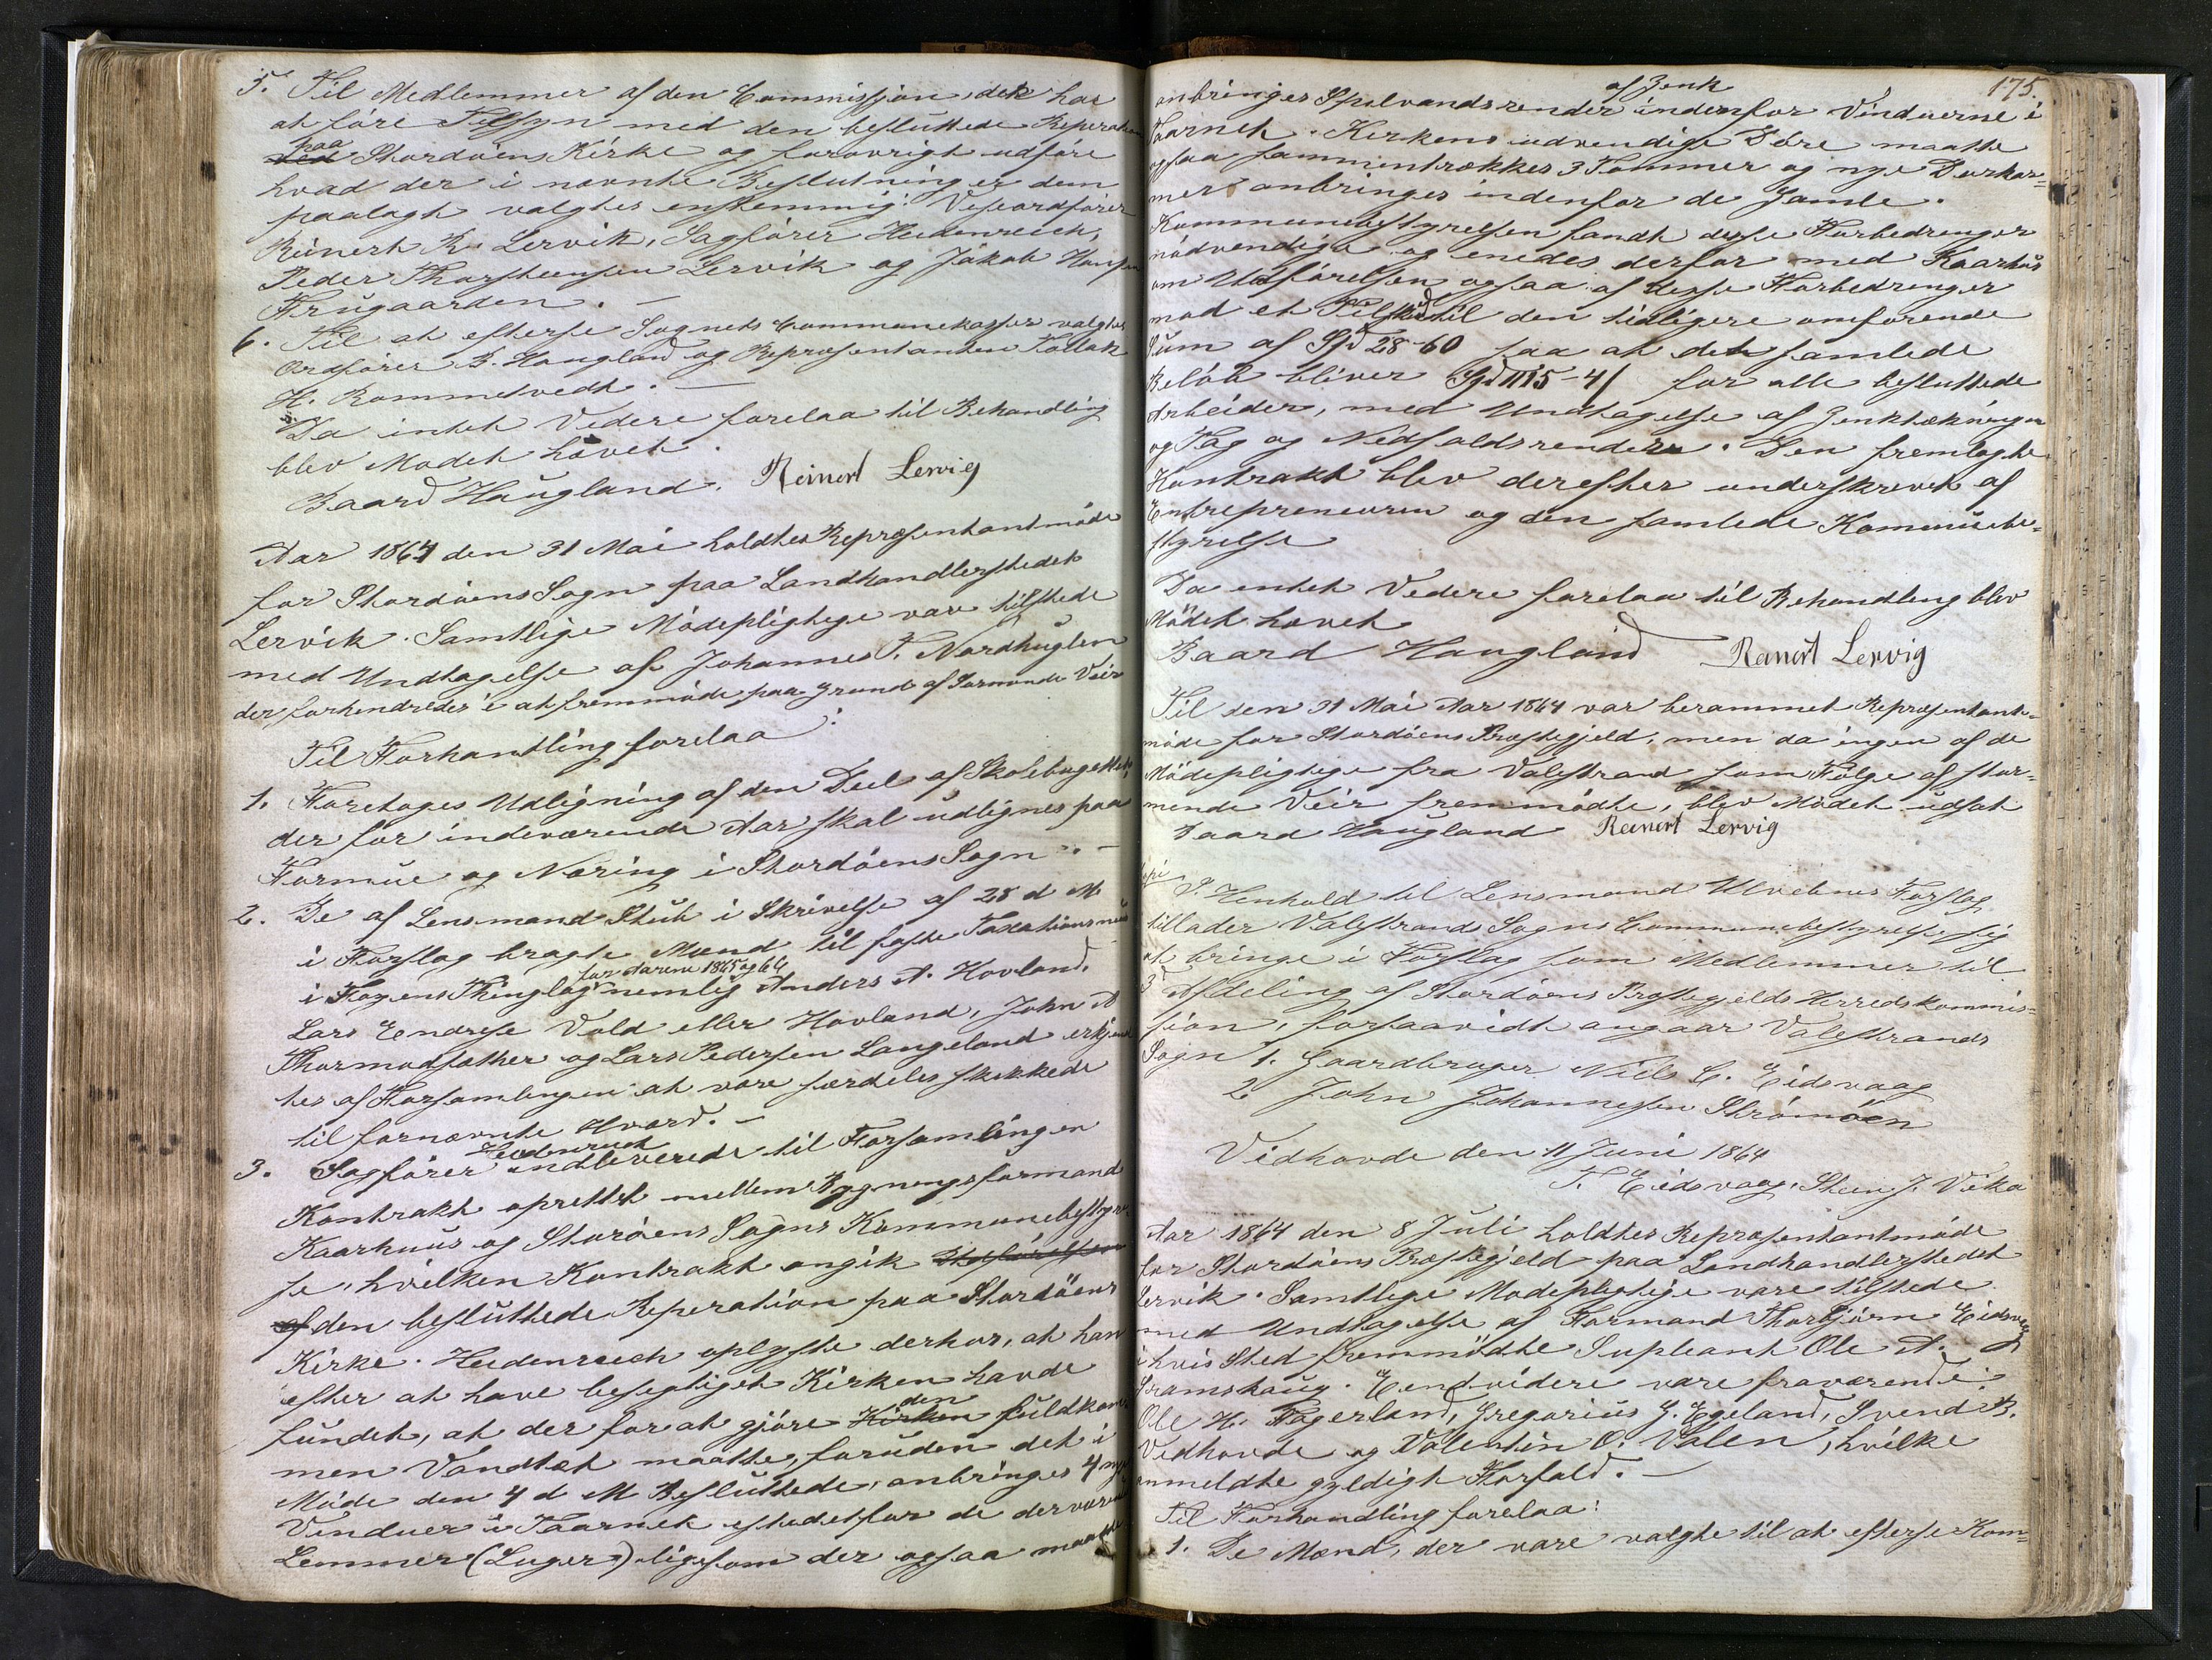 5. Til Medlemmer af den Commissjon, der har
at före Tilsyn med den besluttede Reperation
paa
ved Stordöens Kirke og forövrigt udföre
hvad der i nævnte Beslutning er dem
paalagt valgtes enstemmig: Viseordförer
Reinert R. Lervik, Sagförer Heidenreich,
Peder Thorsteensen Lervik og Jakob Hansen
Frugaarden. —
6. Til at efterse Sognets Communekasser valgtes
Ordförer B. Haugland og Representanten Tollak
H. Rommetvedt. —
Da intet Videre forelaa til Behandling
blev Mödet hævet.
Baard Haugland. Reinert Lervig
Aar 1864 den 31 Mai holdtes Representantmöde
for Stordöens Sogn paa Landhandlerstedet
Lervik. Samtlige Mödepligtige vare tilstede
med Undtagelse af Johannes T. Nordhuglen
der forhindredes i at fremmöde paa Grund af Stormende Veir
Til Forhandling forelaa:
1. Foretoges Udligning af den Deel af Skolebugettet,
der for indeværende Aar skal udlignes paa
Formue og Næring i Stordöens Sogn. —
2. De af Lensmand Stub i Skrivelse af 28 d M
i Forslag bragte Mænd til faste Taxationsmænd
for Aarene 1865 og 66
i Fløyens Thinglag nemlig Anders A. Hovland,
Lars Endrese Vold eller Hovland, John A
Thormodsæther og Lars Pedersen Langeland erkjend
tes af Forsamlingen at være særdeles skikkede
til fornævnte Hværd. —
Heidenreich
3. Sagförer indleverede til Forsamlingen
Kontrakt oprettet mellem Bygningsformand
Kaarhuus og Storöens Sogns Kommunebestyrel-
se, hvilken Kontrakt angik Udförelsen
af den besluttede Reperation paa Stordöens
Kirke. Heidenreich oplyste derhos, at han
efter at have besegtiget Kirken havde
den
fundet, at der for at gjöre Kirken fuldkom-
men Vandtæt maatte, foruden det i
Möde den 4 d M Besluttede, anbringes 4 nye
Vinduer i Taarnet istedetfor de derværende
Lemmer (Luger) ligesom der ogsaa maatte
175.
af Zenk
anbringes Spilvandsrender indenfor Vinduerne i
Taarnet. Kirkens udvendige Döre maatte
ogsaa sammentrækkes 3 Tommer og nye Dorkar=
mer anbringes indenfor de Gamle.
Kommunebestyrelsen fandt disse Forbedringer
nödvendige og enedes derfor med Kaarhus
om Udförelsen ogsaa af disse Forbedringer
mod et Tilskud til den tidligere omforende
Sum af Spd 28-60 saa at det samlede
Belöb bliver Spd 1115-41 for alle besluttede
Arbeider, med Undtagelse af Zenktækningen
og Tag og Nedfaldsrendere. Den fremlagte
Kontrakt blev derefter underskrevet af
Entrepreneuren og den samlede Kommunebe=
styrelse
Da intet Videre forelaa til Behandling blev
Mödet hævet
Baard Haugland Reinert Lervig
Til den 31 Mai Aar 1864 var berammet Representant-
möde for Stordöens Præstegjeld, men da ingen af de
Mödepligtige fra Valestrand som Fölge af stor=
mende Veir fremmödte, blev Mödet udsat
Baard Haugland Reinert Lervig
I Henhold til Lensmand Ulvebnes Forslag
tillader Valestrands Sogns Communebestyrelse sig
at bringe i Forslag som Medlemmer til
3 Afdeling af Stordöens Prestegjelds Herredskommis=
sion, forsaavidt angaar Valestrands
Sogn 1. Gaardbruger Niels C. Eidsvaag
2 John Johannesen Strömöen
Vidhovde den 11 Juni 1864
T. Eidsvaag. Steen J. Vika
Aar 1864 den 8 Juli holdtes Representantmöde
for Stordöens Præstegjeld paa Landhandlerstedet
Lervik. Samtlige Mödepligtige vare tilstede
med Undtagelse af Formand Thorbjörn Eidsvaag
i hvis Sted fremmödte Supleant Ole A.
Framshaug. Eendvidere vare fraværende:
Ole H. Fagerland, Gregorius J. Egeland, Svend B.
Vidhovde og Valentin O. Valen, hvilke
anmeldte gyldigt Forfald. —
Til Forhandling forelaa:
1. De Mænd, der vare valgte til at efterse Kom=